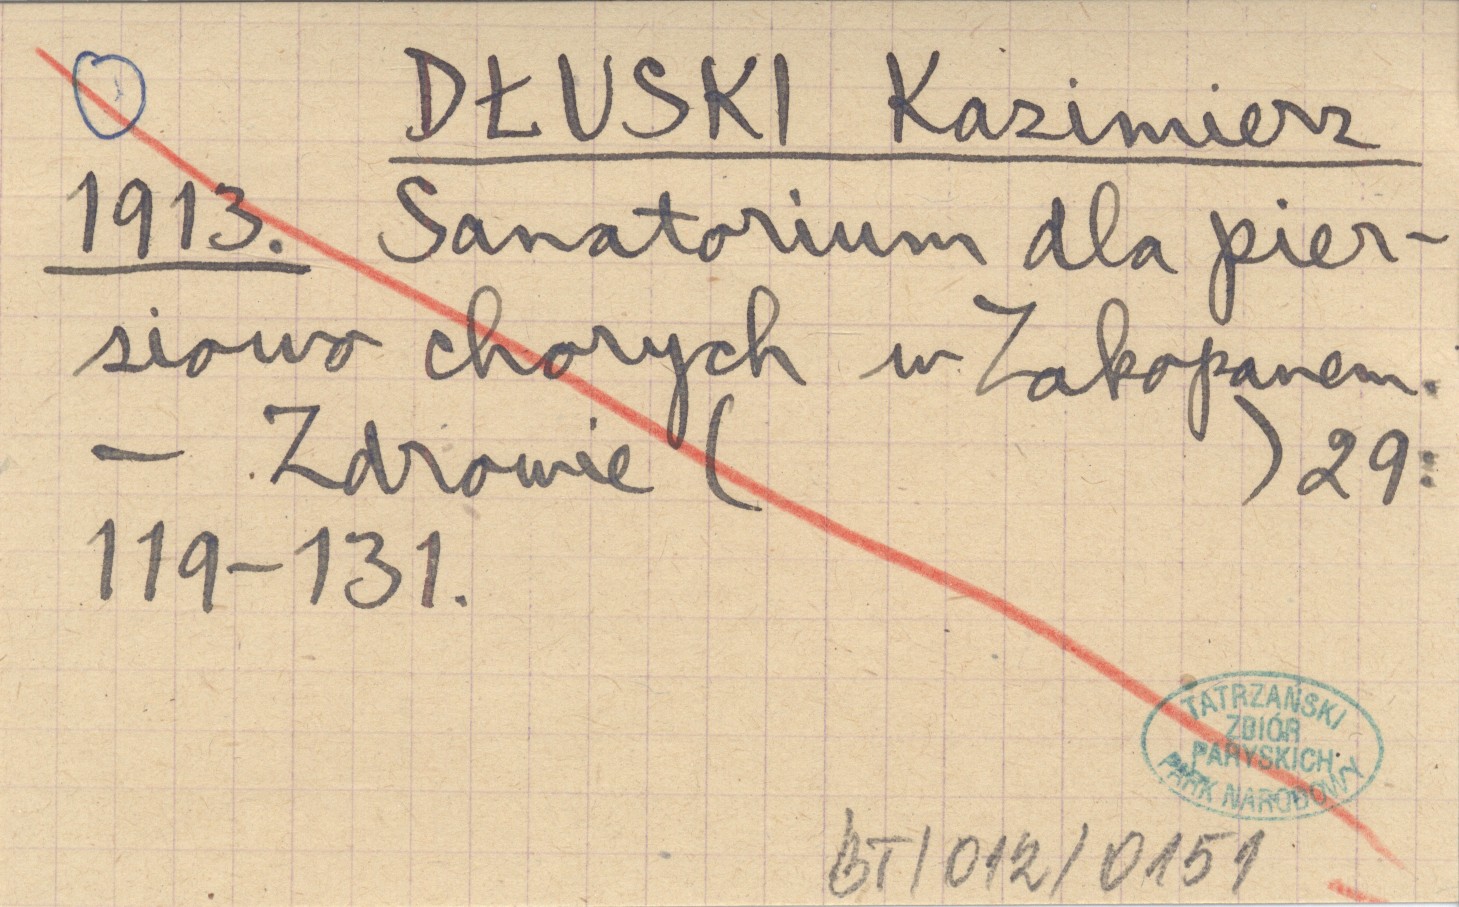 DŁUSKI Kazimierz
1913. Sanatorium dla pier-
siowo chorych w Zakopanem.
- Zdrowie ( ) 29:
119-131.
TATRZAŃSKI
ZBIÓR
PARYSKICH
PARK NARODOWY
BT/012/0151